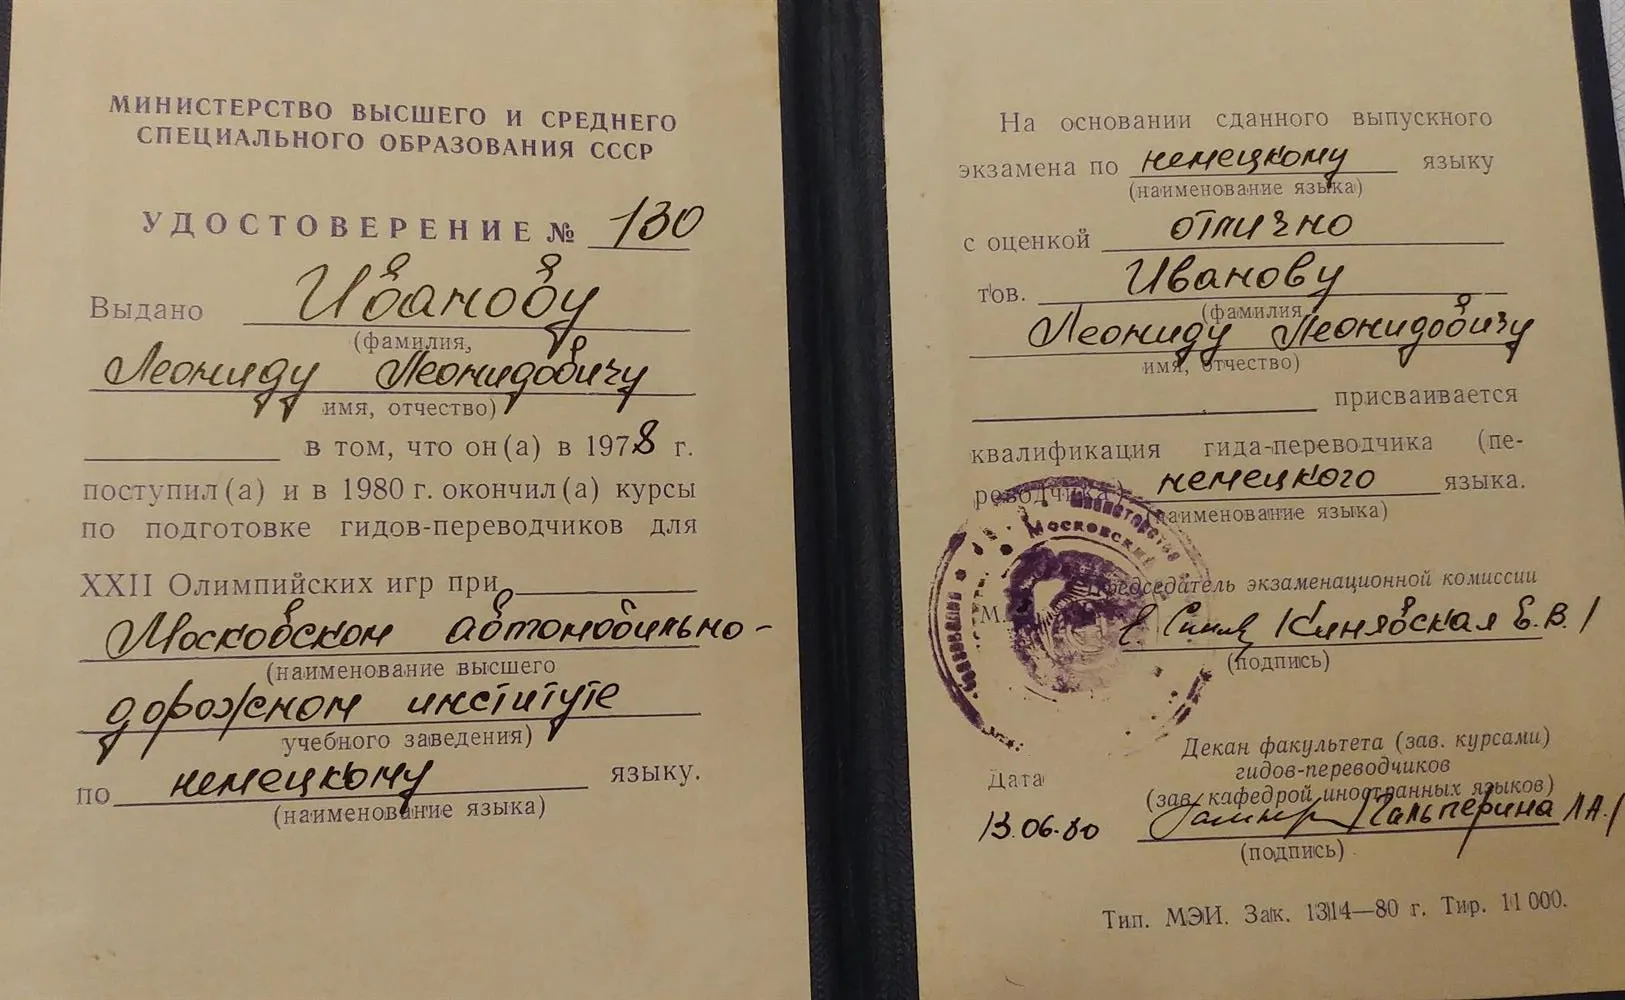 МИНИСТЕРСТВО ВЫСШЕГО И СРЕДНЕГО
СПЕЦИАЛЬНОГО ОБРАЗОВАНИЯ СССР
УДОСТОВЕРЕНИЕ № 130
Выдано Иванову
(фамилия,
Леониду Леонидовичу
имя, отчество)
в том, что он(а) в 1978 г.
поступил(а) и в 1980 г. окончил(а) курсы
по подготовке гидов-переводчиков для
XXII Олимпийских игр при
Московском автомобильно-
(наименование высшего
дорожном институте
учебного заведения)
по немецкому языку.
(наименование языка)
На основании сданного выпускного
экзамена по немецкому языку
(наименование языка)
с оценкой отлично
тов. Иванову
(фамилия,
Леониду Леонидовичу
имя, отчество)
присваивается
квалификация гида-переводчика (пе-
реводчика) немецкого языка.
(наименование языка)
Министерство
Московский
Председатель экзаменационной комиссии
М.
Кинявская Е.В.
(подпись)
Декан факультета (зав. курсами)
гидов-переводчиков
Дата
(зав. кафедрой иностранных языков)
13.06.80 Гальперина Л.А.
(подпись)
Тип. МЭИ. Зак. 1314—80 г. Тир. 11 000.